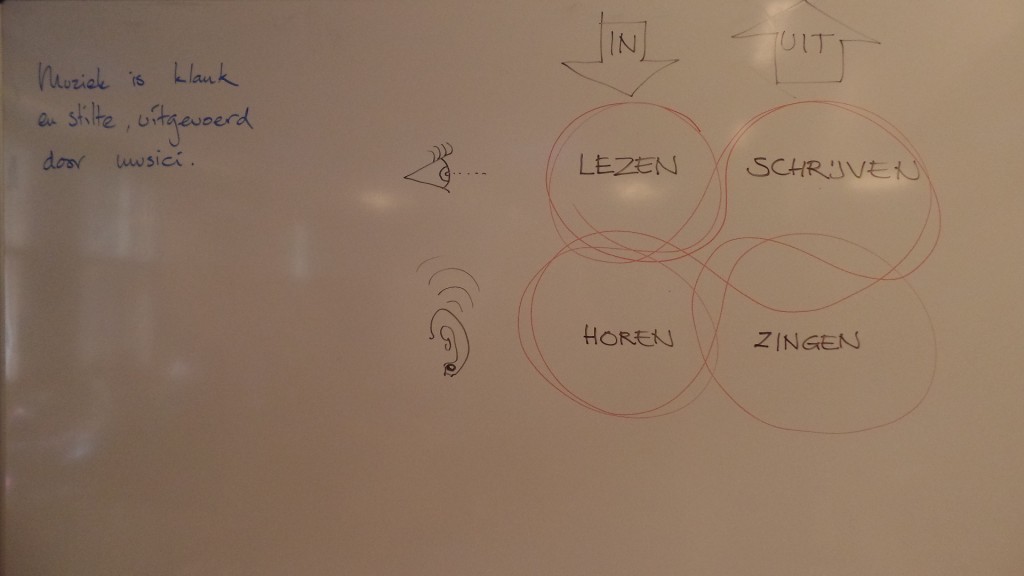 Muziek is klank
en stilte, uitgevoerd
door musici.
IN
UIT
LEZEN
SCHRIJVEN
HOREN
ZINGEN